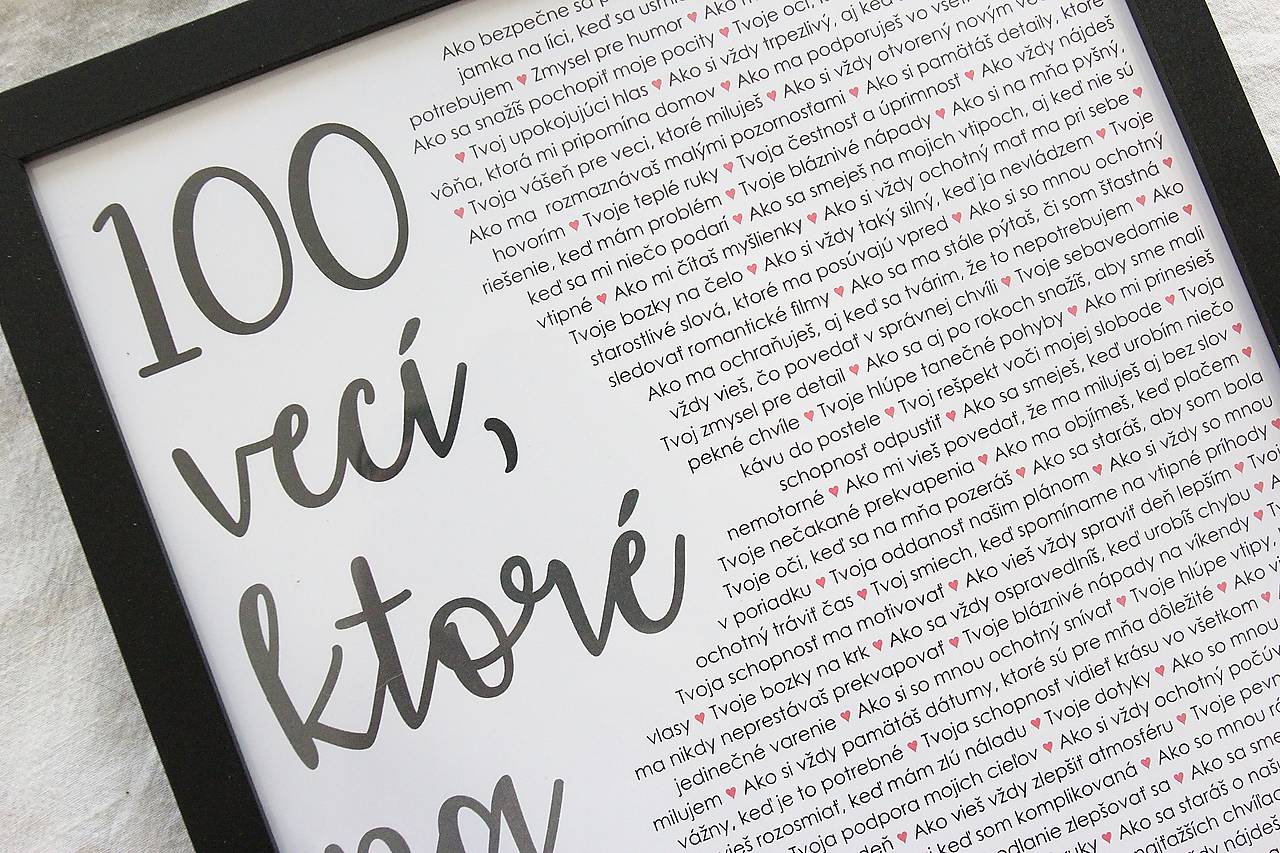 100
veci,
ktoré
na
Ako bezpečne sa
jamka na líci, keď sa
potrebujem ♥ Zmysel pre humor ♥ Ako
Ako sa snažíš pochopiť moje pocity ♥ Tvoje oči,
♥ Tvoj upokojujúci hlas ♥ Ako si vždy trpezlivý, aj keď
vôňa, ktorá mi pripomína domov ♥ Ako ma podporuješ vo
♥ Tvoja vášeň pre veci, ktoré miluješ ♥ Ako si vždy otvorený novým
Ako ma rozmaznávaš malými pozornosťami ♥ Ako si pamätáš detaily, ktoré
hovorím ♥ Tvoje teplé ruky ♥ Tvoja čestnosť a úprimnosť ♥ Ako vždy nájdeš
riešenie, keď mám problém ♥ Tvoje bláznivé nápady ♥ Ako si na mňa pyšný,
keď sa mi niečo podarí ♥ Ako sa smeješ na mojich vtipoch, aj keď nie sú
vtipné ♥ Ako mi čítaš myšlienky ♥ Ako si vždy ochotný mať ma pri sebe ♥
Tvoje bozky na čelo ♥ Ako si vždy taký silný, keď ja nevládzem ♥ Tvoje
starostlivé slová, ktoré ma posúvajú vpred ♥ Ako si so mnou ochotný
sledovať romantické filmy ♥ Ako sa ma stále pýtaš, či som šťastná ♥
Ako ma ochraňuješ, aj keď sa tvárim, že to nepotrebujem ♥ Ako
vždy vieš, čo povedať v správnej chvíli ♥ Tvoje sebavedomie ♥
Tvoj zmysel pre detail ♥ Ako sa aj po rokoch snažíš, aby sme mali
pekné chvíle ♥ Tvoje hlúpe tanečné pohyby ♥ Ako mi prinesieš
kávu do postele ♥ Tvoj rešpekt voči mojej slobode ♥ Tvoja
schopnosť odpustiť ♥ Ako sa smeješ, keď urobím niečo
nemotorné ♥ Ako mi vieš povedať, že ma miluješ aj bez slov ♥
Tvoje nečakané prekvapenia ♥ Ako ma objímeš, keď plačem ♥
Tvoje oči, keď sa na mňa pozeráš ♥ Ako sa staráš, aby som bola
v poriadku ♥ Tvoja oddanosť našim plánom ♥ Ako si vždy so mnou
ochotný tráviť čas ♥ Tvoj smiech, keď spomíname na vtipné príhody ♥
Tvoja schopnosť ma motivovať ♥ Ako vieš vždy spraviť deň lepším ♥
vlasy ♥ Tvoje bozky na krk ♥ Ako sa vždy ospravedlníš, keď urobíš chybu ♥
ma nikdy neprestávaš prekvapovať ♥ Tvoje bláznivé nápady na víkendy ♥
jedinečné varenie ♥ Ako si so mnou ochotný snívať ♥ Tvoje hlúpe vtipy,
milujem ♥ Ako si vždy pamätáš dátumy, ktoré sú pre mňa dôležité ♥ Ako
vážny, keď je to potrebné ♥ Tvoja schopnosť vidieť krásu vo všetkom ♥
vieš rozosmiať, keď mám zlú náladu ♥ Tvoje dotyky ♥ Ako so mnou
Tvoja podpora mojich cieľov ♥ Ako si vždy ochotný
deň ♥ Ako vieš vždy zlepšiť atmosféru ♥ Tvoje
keď som komplikovaná ♥ Ako so mnou
odhodlanie zlepšovať sa ♥ Ako sa
ruky ♥ Ako sa staráš o
najťažších chvíľach
vždy nájdeš